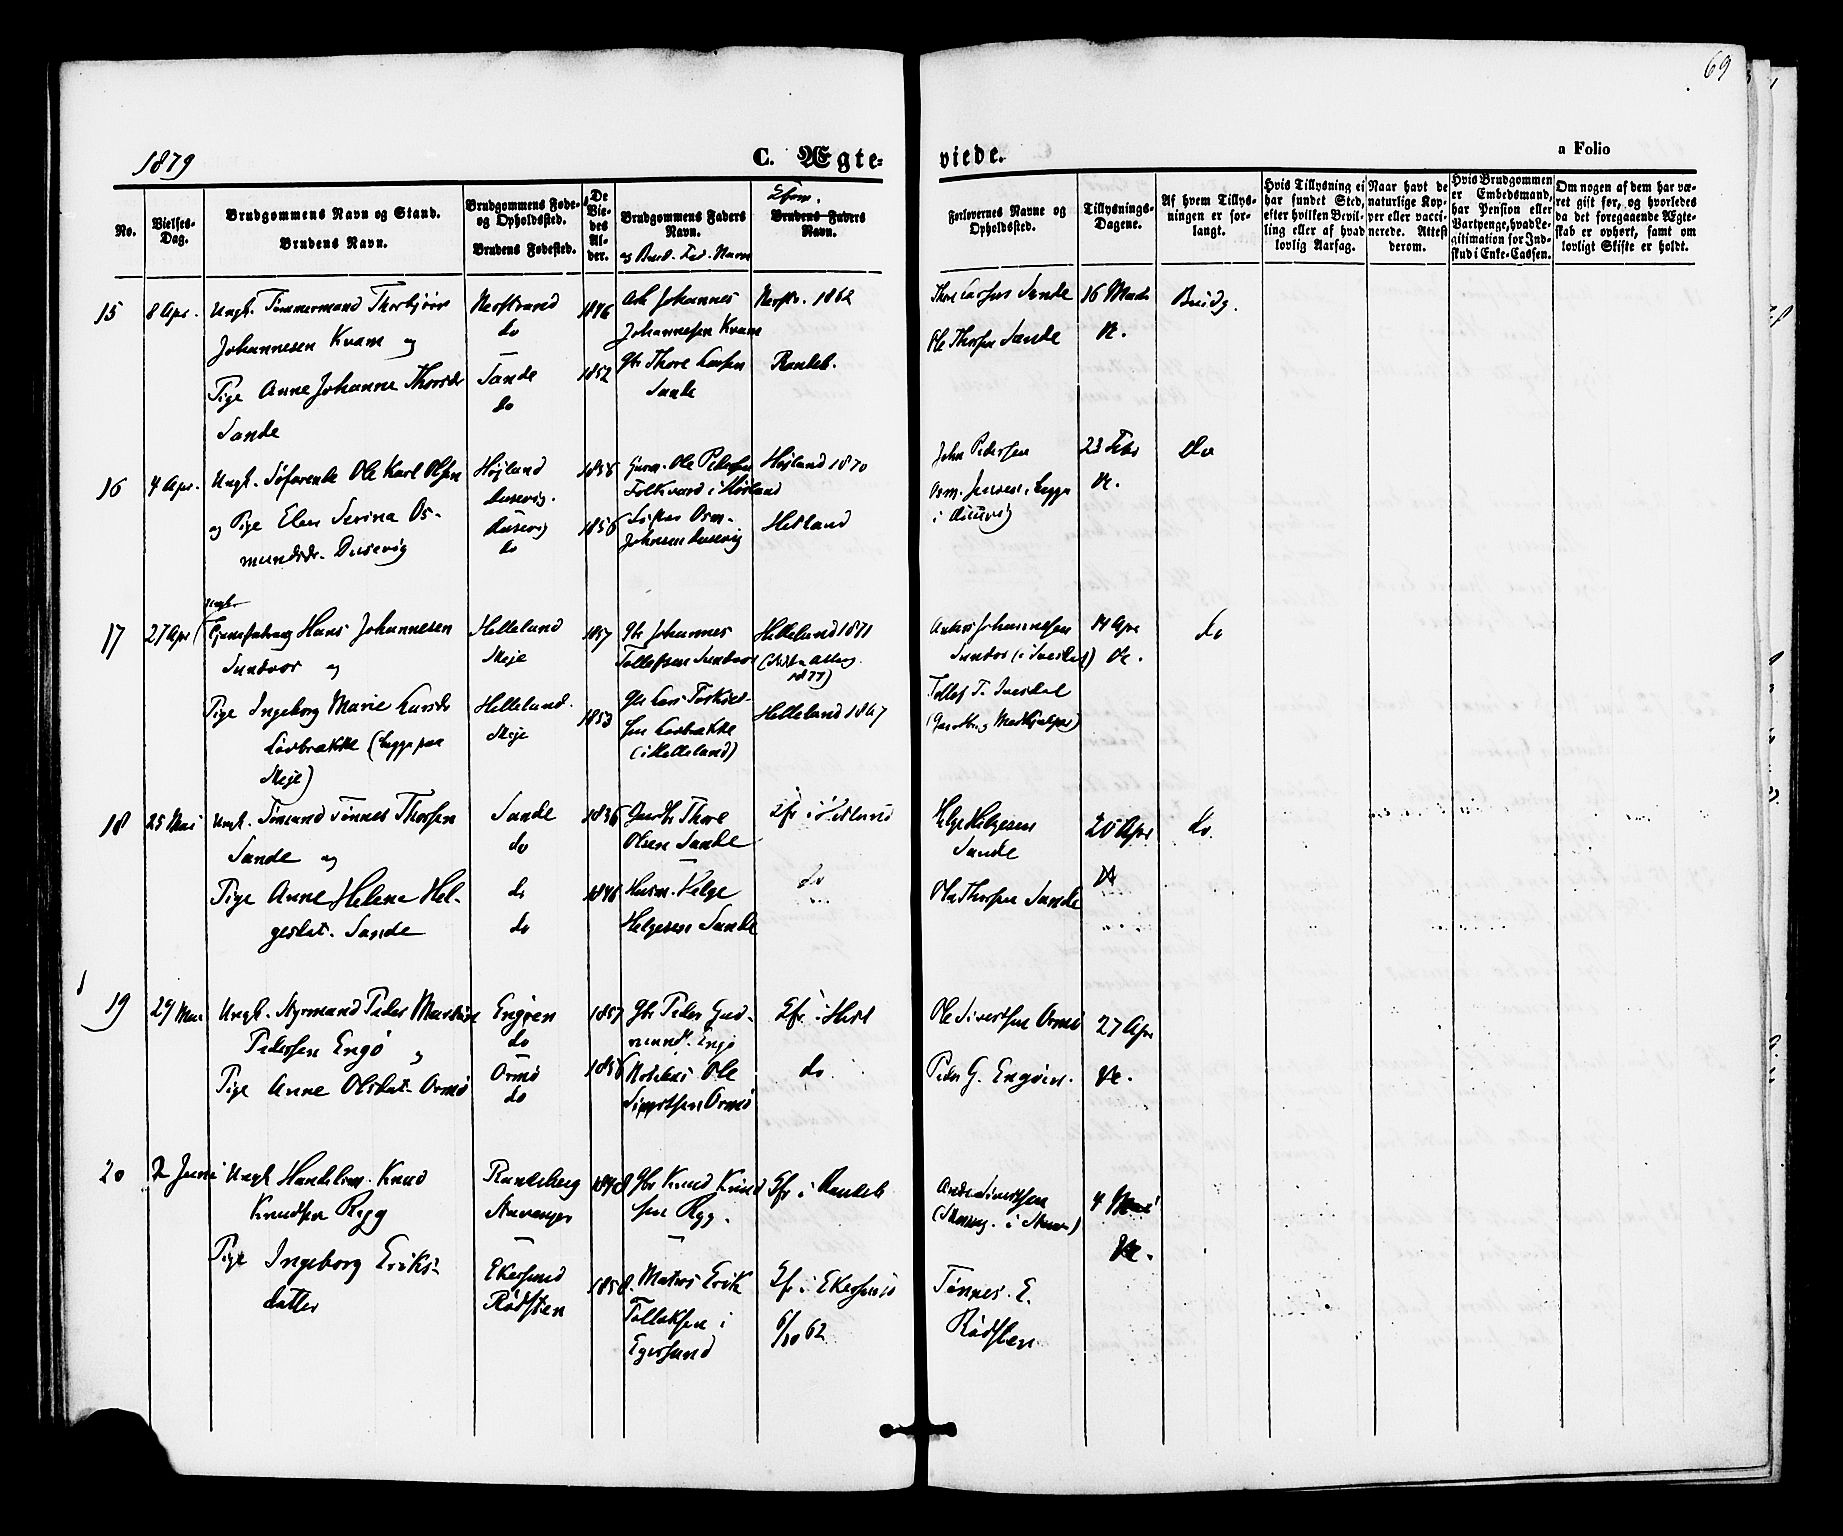 69
1879
C. Ægte-
viede.
a Folio
No.
Vielses-
Dag.
Brudgommens Navn og Stand.
Brudens Navn.
Brudgommens Føde-
og Opholdssted.
Brudens Fødested.
De
Vie-
des
Al-
der.
Brudgommens Faders
Navn.
og Brud. Fad. Navn
Brudens Faders
Navn.
Forlovernes Navne og
Opholdssted.
Tillysnings-
Dagene.
Af hvem Tillys-
ningen er for-
langt.
Hvis Tillysning ei
har fundet Sted,
efter hvilken Bevil-
ling eller af hvad
lovlig Aarsag.
Naar havt de
naturlige Kop-
per eller vacci-
nerede. Attest
derom.
Hvis Brudgommen
er Embedsmand,
har Pension eller
Vartpenge, hvad Le-
gitimation for Ind-
skud i Enke-Cassen.
Om nogen af dem har væ-
ret gift før, og hvorledes
da det foregaaende Ægte-
skab er ophørt, samt om
lovligt Skifte er holdt.
15
8 Apr.
Ungk. Tømmermand Thorbjørn
Johannesen Kvam og
Pige Anne Johanne Thorsdr
Sande
Nerstrand
do
Sande
do
1846
1852
Johannes
Johannesen Kvam
Gbr Thore Larsen
Sande
Nerstr. 1862
Randeb.
Thore Larsen Sande
Ole Thorsen Sande
16 Marts
Brudg.
16
4 Apr.
Ungk. Søfarende Ole Karl Olsen
og Pige Elen Serina Os-
mundsdr. Dusevig
Højland
Dusevig.
Dusevig
do
1855
1856
Ole Pedersen
Folkvord i Høiland
Osm.
Johnsen Dusevig
Højland 1870
Hetland
John Pedersen
i Dusevig
23 Febr
do
17
27 Apr
Ungk.
Hans Johannesen
Sundvor og
Pige Ingeborg Marie Larsdr
Løvbrække (Legge paa
Meje)
Helleland
Meje
Helleland.
Meje
1857
1853
Gbr Johannes
Tollefsen Sundvor
Gbr Lars Torkild-
sen Løvbrække
(i Helleland)
Helleland 1871
1877)
Helleland 1867
Johannesen
14 Apr
do
18
25 Mai
Ungk. Tønnes Thorsen
Sande og
Pige Anne Helene Hel-
gesdat. Sande
Sande
do
do
do
1836
1846
Thore
Olsen Sande
Husm. Helge
Helgesen Sande
Efr i Hetland
do
Helge Helgesen
Sande
Ole Thorsen Sande
20 Apr
do.
19
29 Mai
Ungk. Styrmand Peder Martin
Pedersen Engø og
Pige Anne Olsdat. Ormø
Engøen
do
Ormø
do
1857
1856
Gbr Peder Gud-
mund. Engø
Ole
Sivertsen Ormø
Efr i Hetl
do.
Ole Sivertsen Ormø
Peder G. Engøen.
27 Apr
20
2 Juni
Ungk Handelsm. Knud
Knudsen Rygg
Pige Ingeborg Eriks-
datter
Randeberg
Stavanger
Ekersund
Rødsten
1848
1858.
Gbr Knud Knud
sen Rygg.
Matros Erik
Tollaksen i
Egersund
Efr i Randeb
Efr i Ekersund
6/10 62
Sivertsen
Tønnes. E.
Rødsten
4 Mai